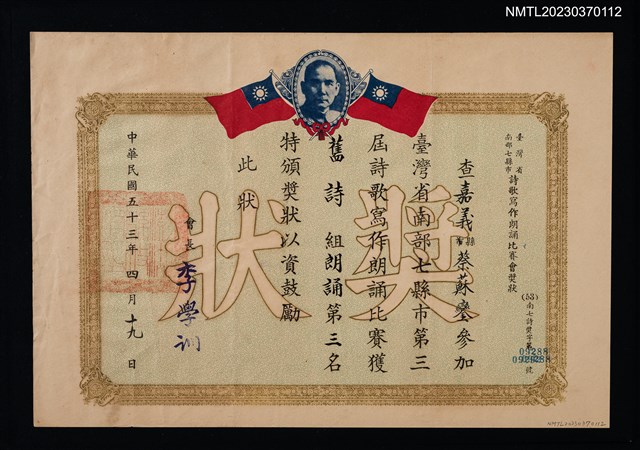 NMTL20230370112
獎狀
臺灣省
南部七縣市
詩歌寫作朗誦比賽會獎狀
(53)南七詩獎字第09288號
查嘉義縣市蔡蘇鑾參加
臺灣省南部七縣市第三
屆詩歌寫作朗誦比賽獲
舊詩組朗誦第三名
特頒獎狀以資鼓勵
此狀
會長 李學訓
中華民國五十三年四月十九日
NMTL20230370112